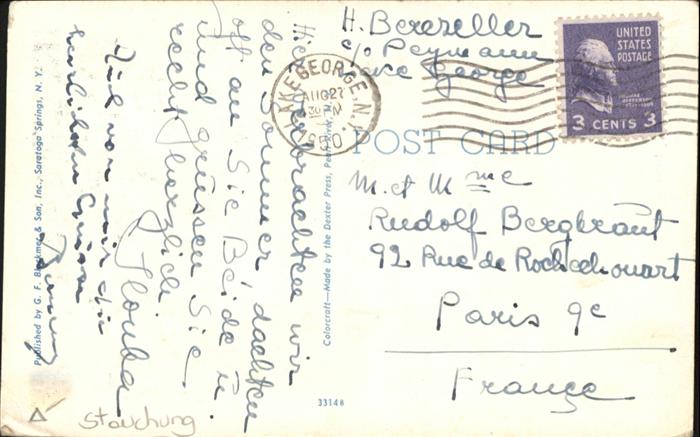 H. Berezeller
c/o Peymann
Lake George
UNITED
STATES
POSTAGE
3 CENTS 3
LAKE GEORGE, N.Y.
AUG 27
1950
POST CARD
M. et Mme
Rudolf Bergbraut
92 Rue de Rochechouart
Paris 9e
France
Hier verbrachten wir
den Sommer dachten
oft an Sie Beide u.
und grüssen Sie
recht herzlich
Auch von mir die
herzlichsten Grüsse
Published by G. F. Bleckmer & Son, Inc., Saratoga Springs, N. Y.
Colorcraft—Made by the Dexter Press, Pearl River, N.
33148
Stauchung